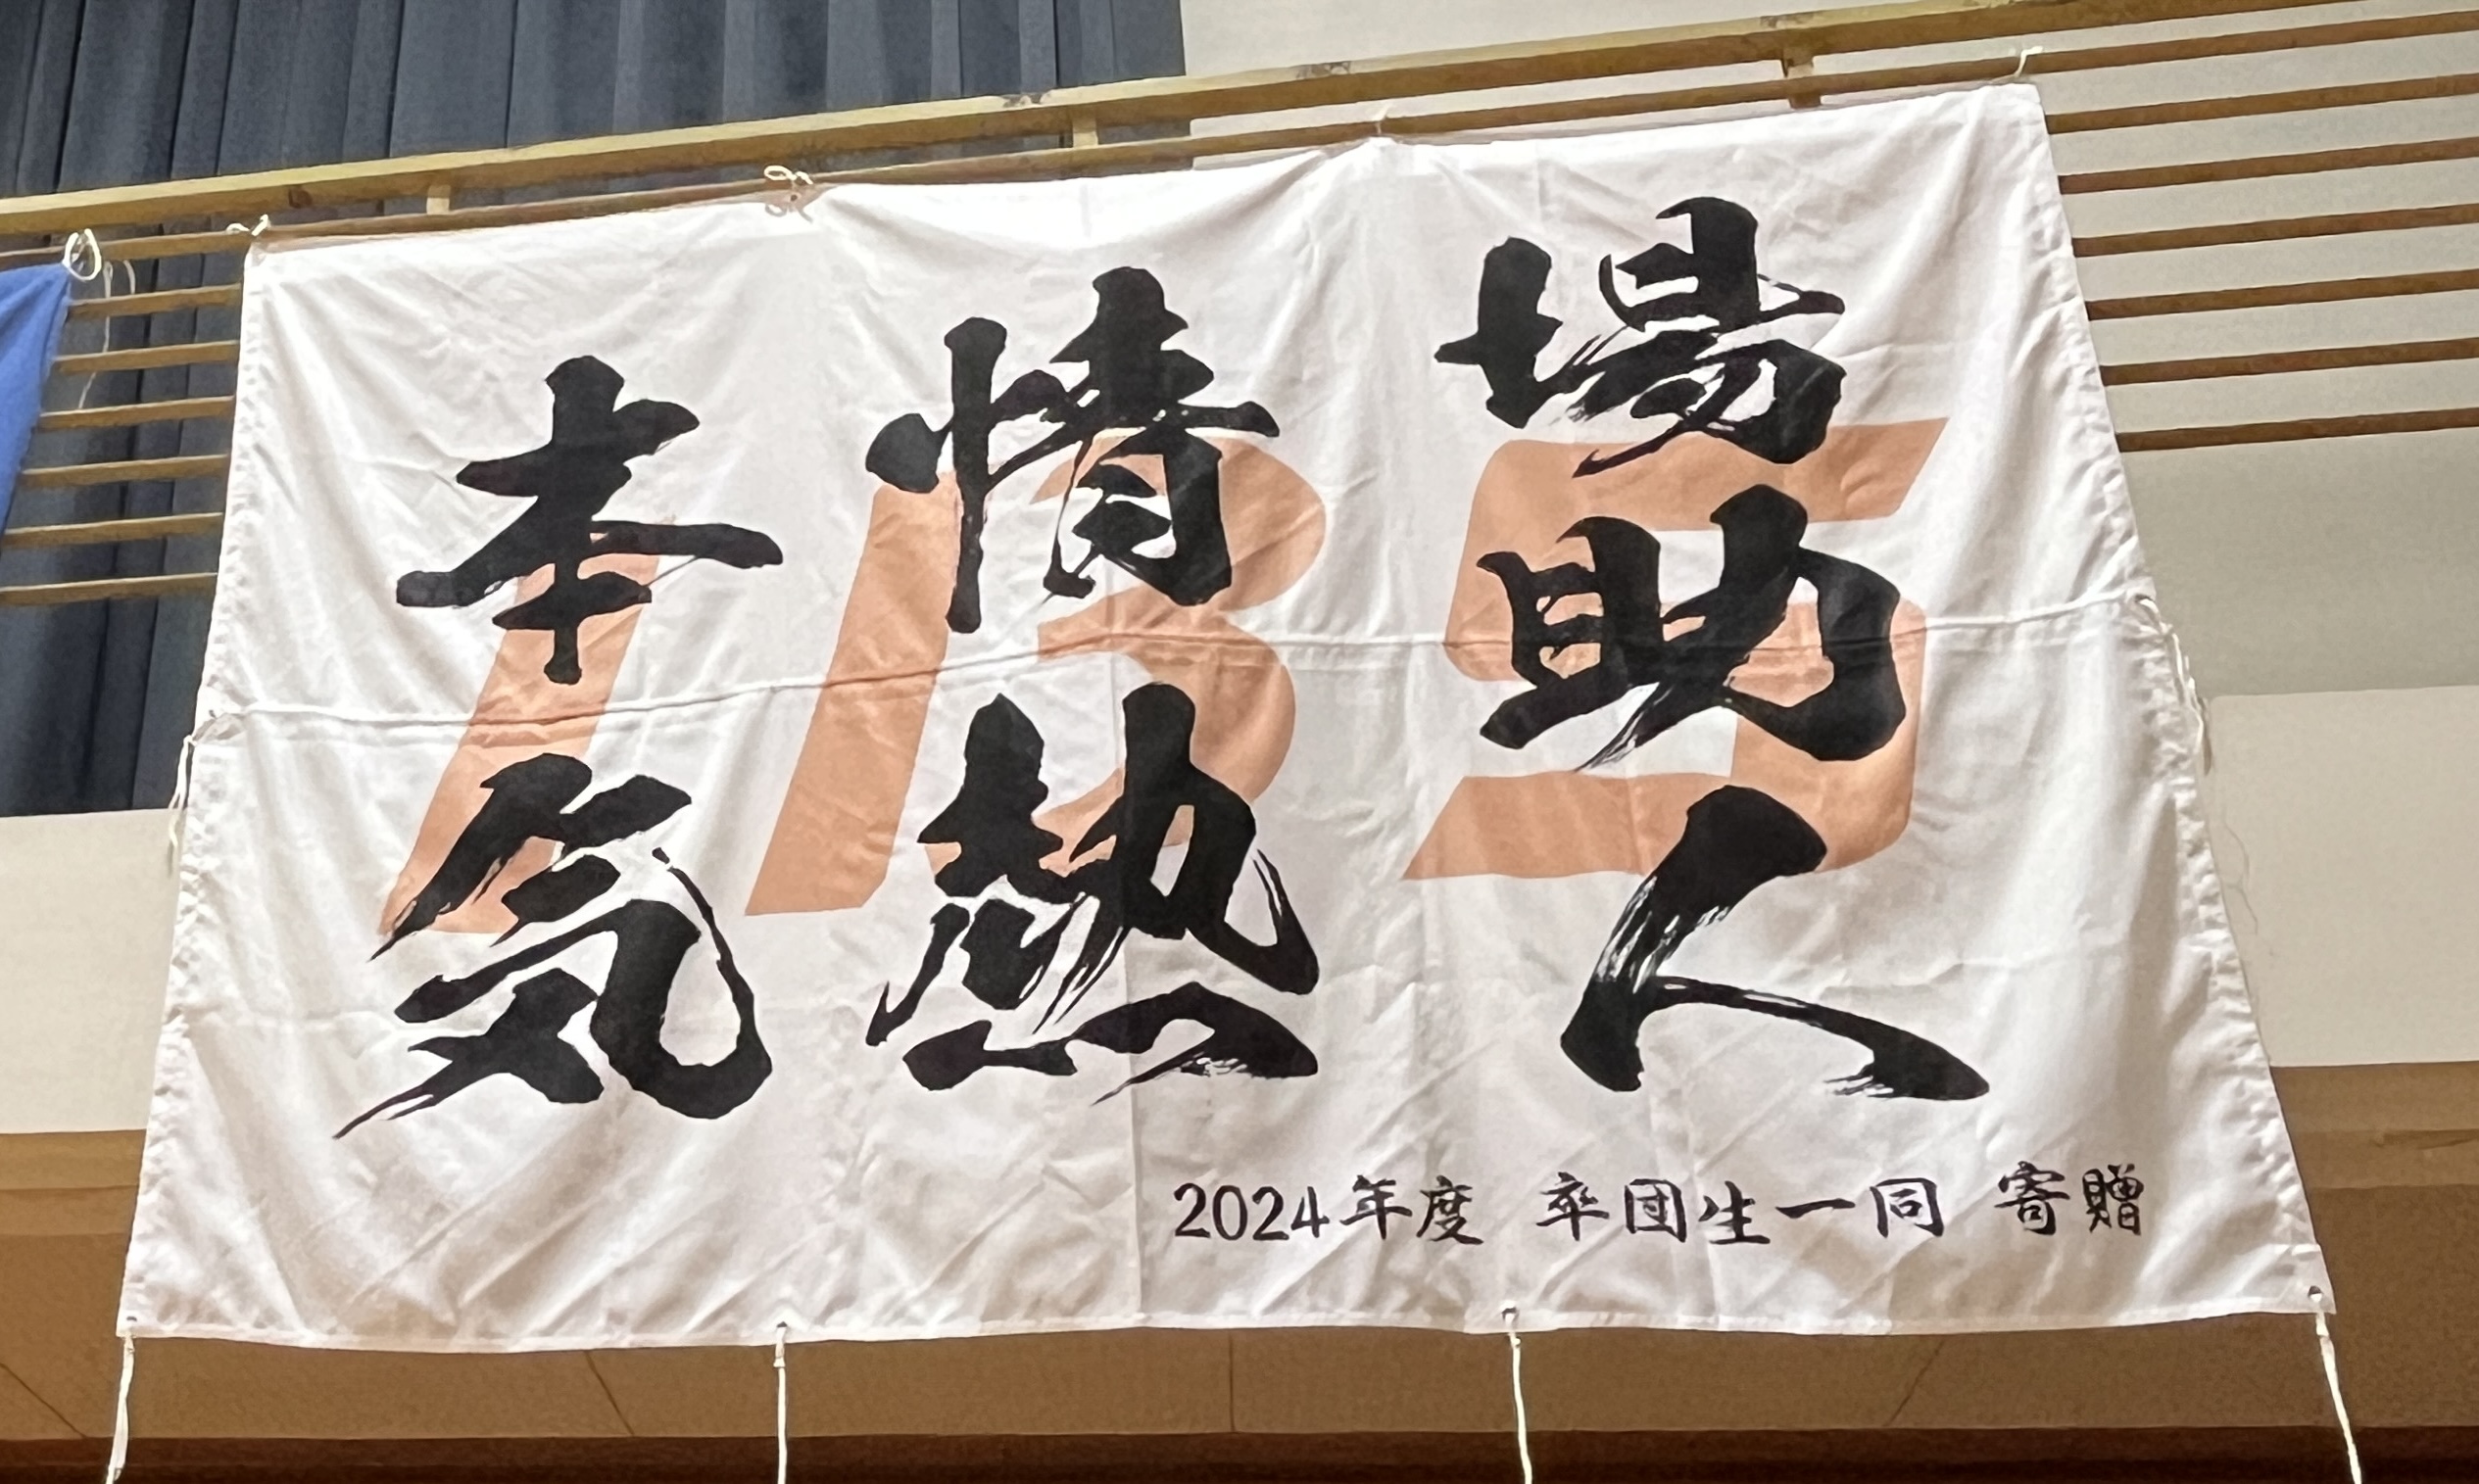 場助人
情熱
本気
IBS
2024年度 卒団生一同 寄贈